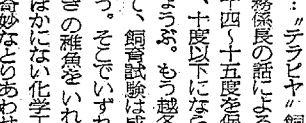 …〃テラピヤ〃飼
務係長の話による
十四〜十五度を保
、十度以下になら
ょうぶ。もう越冬
て、飼育試験は成
う。そこでいずれ
きの稚魚をいれ
ほかにない化学工
奇妙なとりあわせ